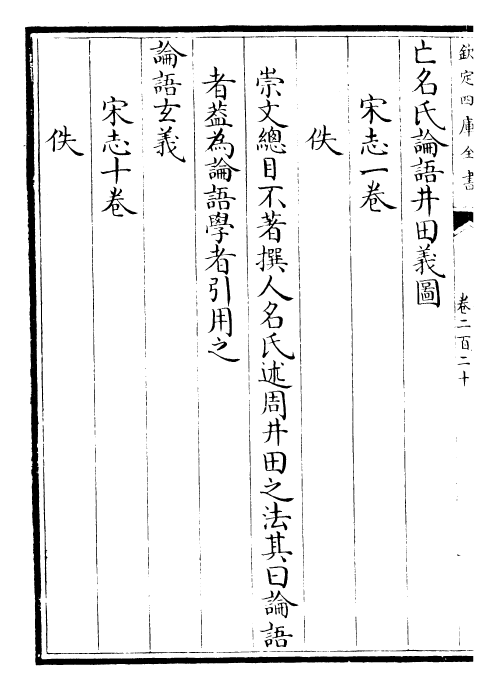 欽定四庫全書
卷二百二十
亡名氏論語井田義圖
宋志一卷
佚
崇文總目不著撰人名氏述周井田之法其曰論語
者葢為論語學者引用之
論語玄義
宋志十卷
佚